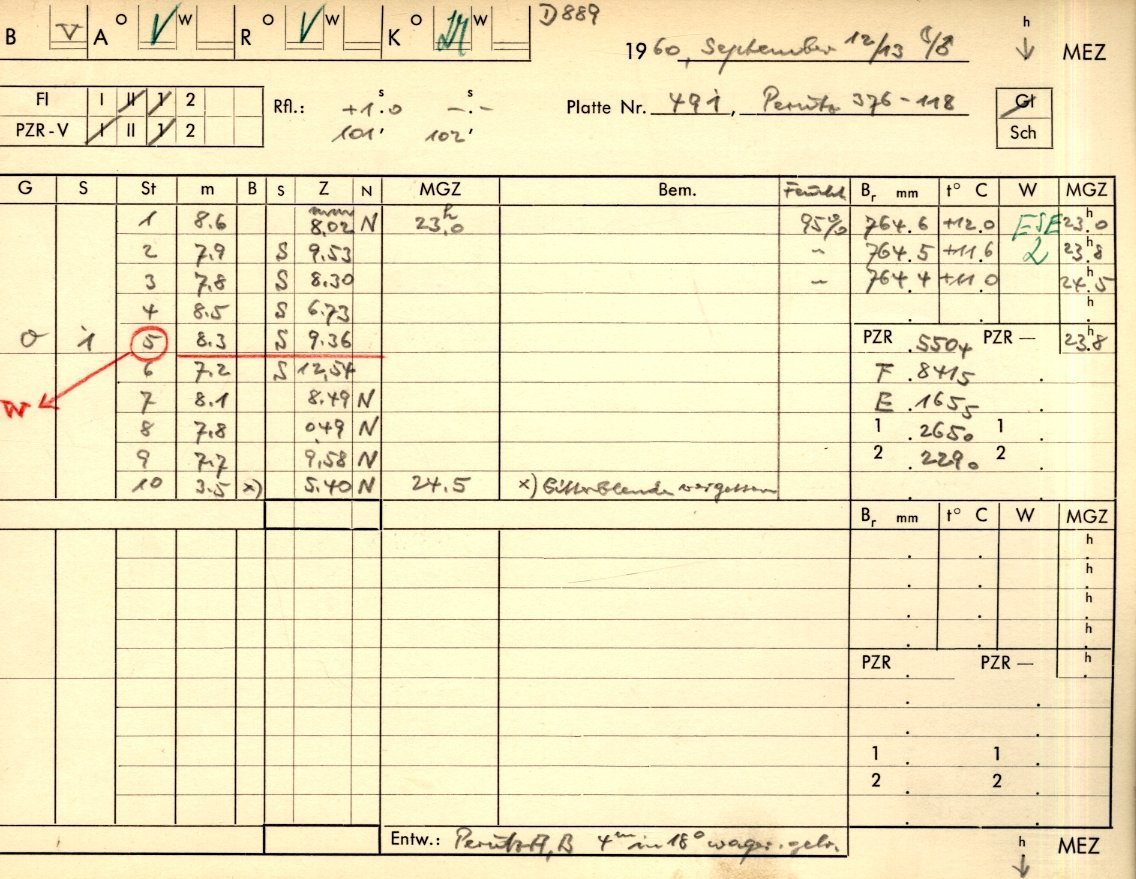 D889
B V A O V W R O V W K O W
1960, September 12/13 h MEZ
Fl I II 1 2 Rfl.: +1.0 s -.- s Platte Nr. 491, Perutz 376-118 Gl
PZR-V I II 1 2 101' 102' Sch
G S St m B S Z N MGZ Bem. Feucht. Br mm t° C W MGZ
1 8.6 mm 8.02 N 23.0 h 95% 764.6 +12.0 ESE 23.0 h
2 7.9 S 9.53 – 764.5 +11.6 2 23.8 h
3 7.8 S 8.30 – 764.4 +11.0 24.5 h
4 8.5 S 6.73 h
o i 5 8.3 S 9.36 PZR .5504 PZR — 23.8 h
6 7.2 S 12.54 F .8415
W 7 8.1 8.49 N E .1655
8 7.8 0.49 N 1 .2650 1
9 7.7 9.58 N 2 .2290 2
10 3.5 x) 5.40 N 24.5 x) Gitterblende vergessen
Br mm t° C W MGZ
h
h
h
h
PZR PZR — h
1 1
2 2
Entw.: Perutz 4m in 18°
h MEZ